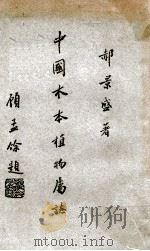 郝景盛著
中國木本植物屬誌
顧孟餘題